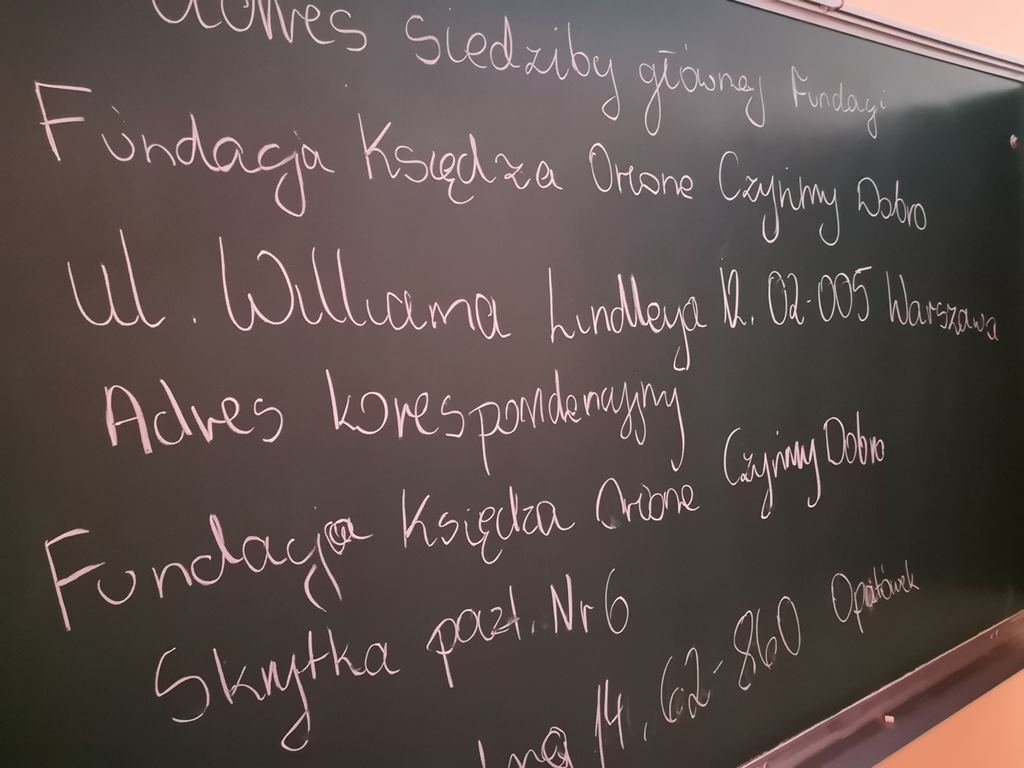 Adres siedziby głównej Fundacji
Fundacja Księdza Orione Czyńmy Dobro
ul. Williama Lindleya 12. 02-005 Warszawa
Adres korespondencyjny
Fundacja Księdza Orione Czyńmy Dobro
Skrytka pozt. Nr 6
14, 62-860 Opatówek